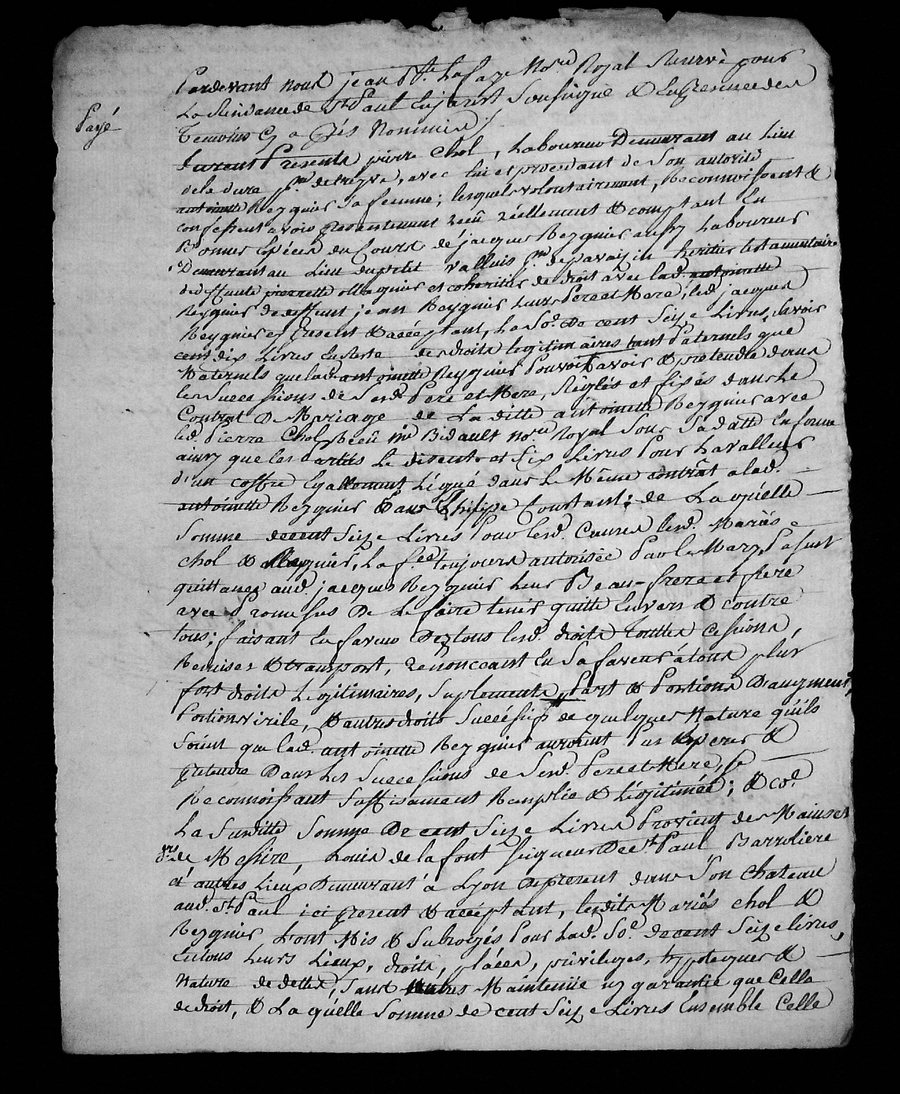 Payé
Pardevant nous jean Bte. Lafaye Nore. Royal Reservé pour
La Residance de St. Paul En jarest Soussigné & En presence des
temoins cy aprés Nommés /
furent Presents pierre Chol, Laboureur Demeurant au lieu
dela dura psse. de treyve, avec lui et procedant de son autorité
antoinette Reyguier sa femme; lesquels volontairement, Reconnoissent &
confessent avoir presentement recû réellement & comptant En
Bonnes Espéces du Cours de jacques Reyguier aussy Laboureur
Demeurant au Lieu du petit Valluis psse. de pavazin heritier testamentaire
de deffunte pierrette Maguier et coheritier de droit avec lad. antoinette
Reyguier de deffunt jean Reyguier Leurs Pere et Mere; led. jacques
Reyguier cy present & accéptant, La So. De cent Seize Livres, Savoir
cent dix Livres En Reste des droits legitimaires tant Paternels que
Maternels que lad. antoinette Reyguier Pouvoit avoir & pretendre dans
les Successions de Sesd. Pere et Mere, Réglés et fixés dans Le
Contrat De Mariage de La ditte antoinette Reyguier avec
led. Pierre Chol Recû Me. Bidault nore. Royal Sous Sa datte En forme
ainsy que les parties Le disent et Six Livres Pour La valleur
d'un coffre Egallement Legué dans le Même contrât a lad.
antoinette Reyguier Par Philippe Courtant; de La quelle
Somme de cent Seize Livres Pour lesd. Causes lesd. Mariés
chol & Reyguier, La fe. toujours autorisée Par le Mary Passent
quittance aud. jacques Reyguier Leur Beau-frere et frere
avec Promesses De Le faire tenir quitte Envers & contre
tous; faisant En faveur De tous lesd. droits touttes cessions,
Remises & transport, renonceant En Sa faveur à tous plus
fort droits Legitimaires, Suplements, Part & Portions D'augment,
Portion virile, & autres droits Succéssifs de quelques Nature qu'ils
soint que lad. antoinette Reyguier auroient Pus Esperer &
pretendre Dans Les Successions de Sesd. Pere et Mere, se
Reconnoissant Suffisament Remplie & Légitimée; & co.
La Susditte Somme De cent Seize Livres Provient des Mains et
drs. de Messire, Louis de la font Seigneur De St. Paul Barrolière
& autres Lieux Demeurant à Lyon De present dans Son chateau
aud. St. Paul ici present & accéptant, lesdits Mariés chol &
Reyguier L'ont Mis & Subrogés Pour Lad. So. de cent Seize livres,
En tous Leurs Lieux, droits, places, privileges, hypoteques &
Nature de dettes, Sans autres Maintenüe ny garantie que Celle
de droit, & La quelle Somme de cent Seize Livres Ensemble Celle